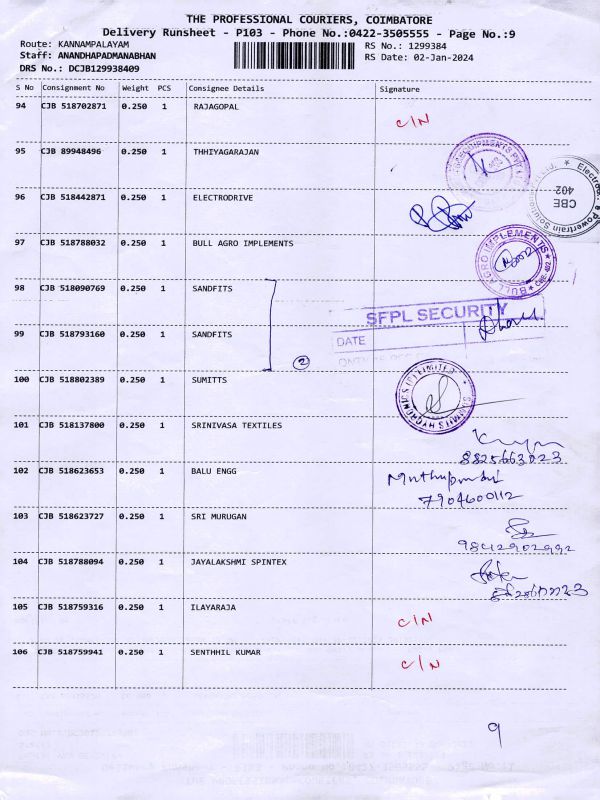 THE PROFESSIONAL COURIERS, COIMBATORE
Delivery Runsheet - P103 - Phone No.:0422-3505555 - Page No.:9
Route: KANNAMPALAYAM RS No.: 1299384
Staff: ANANDHAPADMANABHAN RS Date: 02-Jan-2024
DRS No.: DCJB129938409
S No Consignment No Weight PCS Consignee Details Signature
94 CJB 518702871 0.250 1 RAJAGOPAL C/N
95 CJB 89948496 0.250 1 THHIYAGARAJAN
96 CJB 518442871 0.250 1 ELECTRODRIVE
CBE
402
97 CJB 518788032 0.250 1 BULL AGRO IMPLEMENTS
BULL AGRO IMPLEMENTS
98 CJB 518090769 0.250 1 SANDFITS
SFPL SECURITY
99 CJB 518793160 0.250 1 SANDFITS
DATE
2
100 CJB 518802389 0.250 1 SUMITTS
101 CJB 518137800 0.250 1 SRINIVASA TEXTILES
8825663023
102 CJB 518623653 0.250 1 BALU ENGG
7904600112
103 CJB 518623727 0.250 1 SRI MURUGAN
9842902992
104 CJB 518788094 0.250 1 JAYALAKSHMI SPINTEX
105 CJB 518759316 0.250 1 ILAYARAJA C/N
106 CJB 518759941 0.250 1 SENTHHIL KUMAR C/N
9